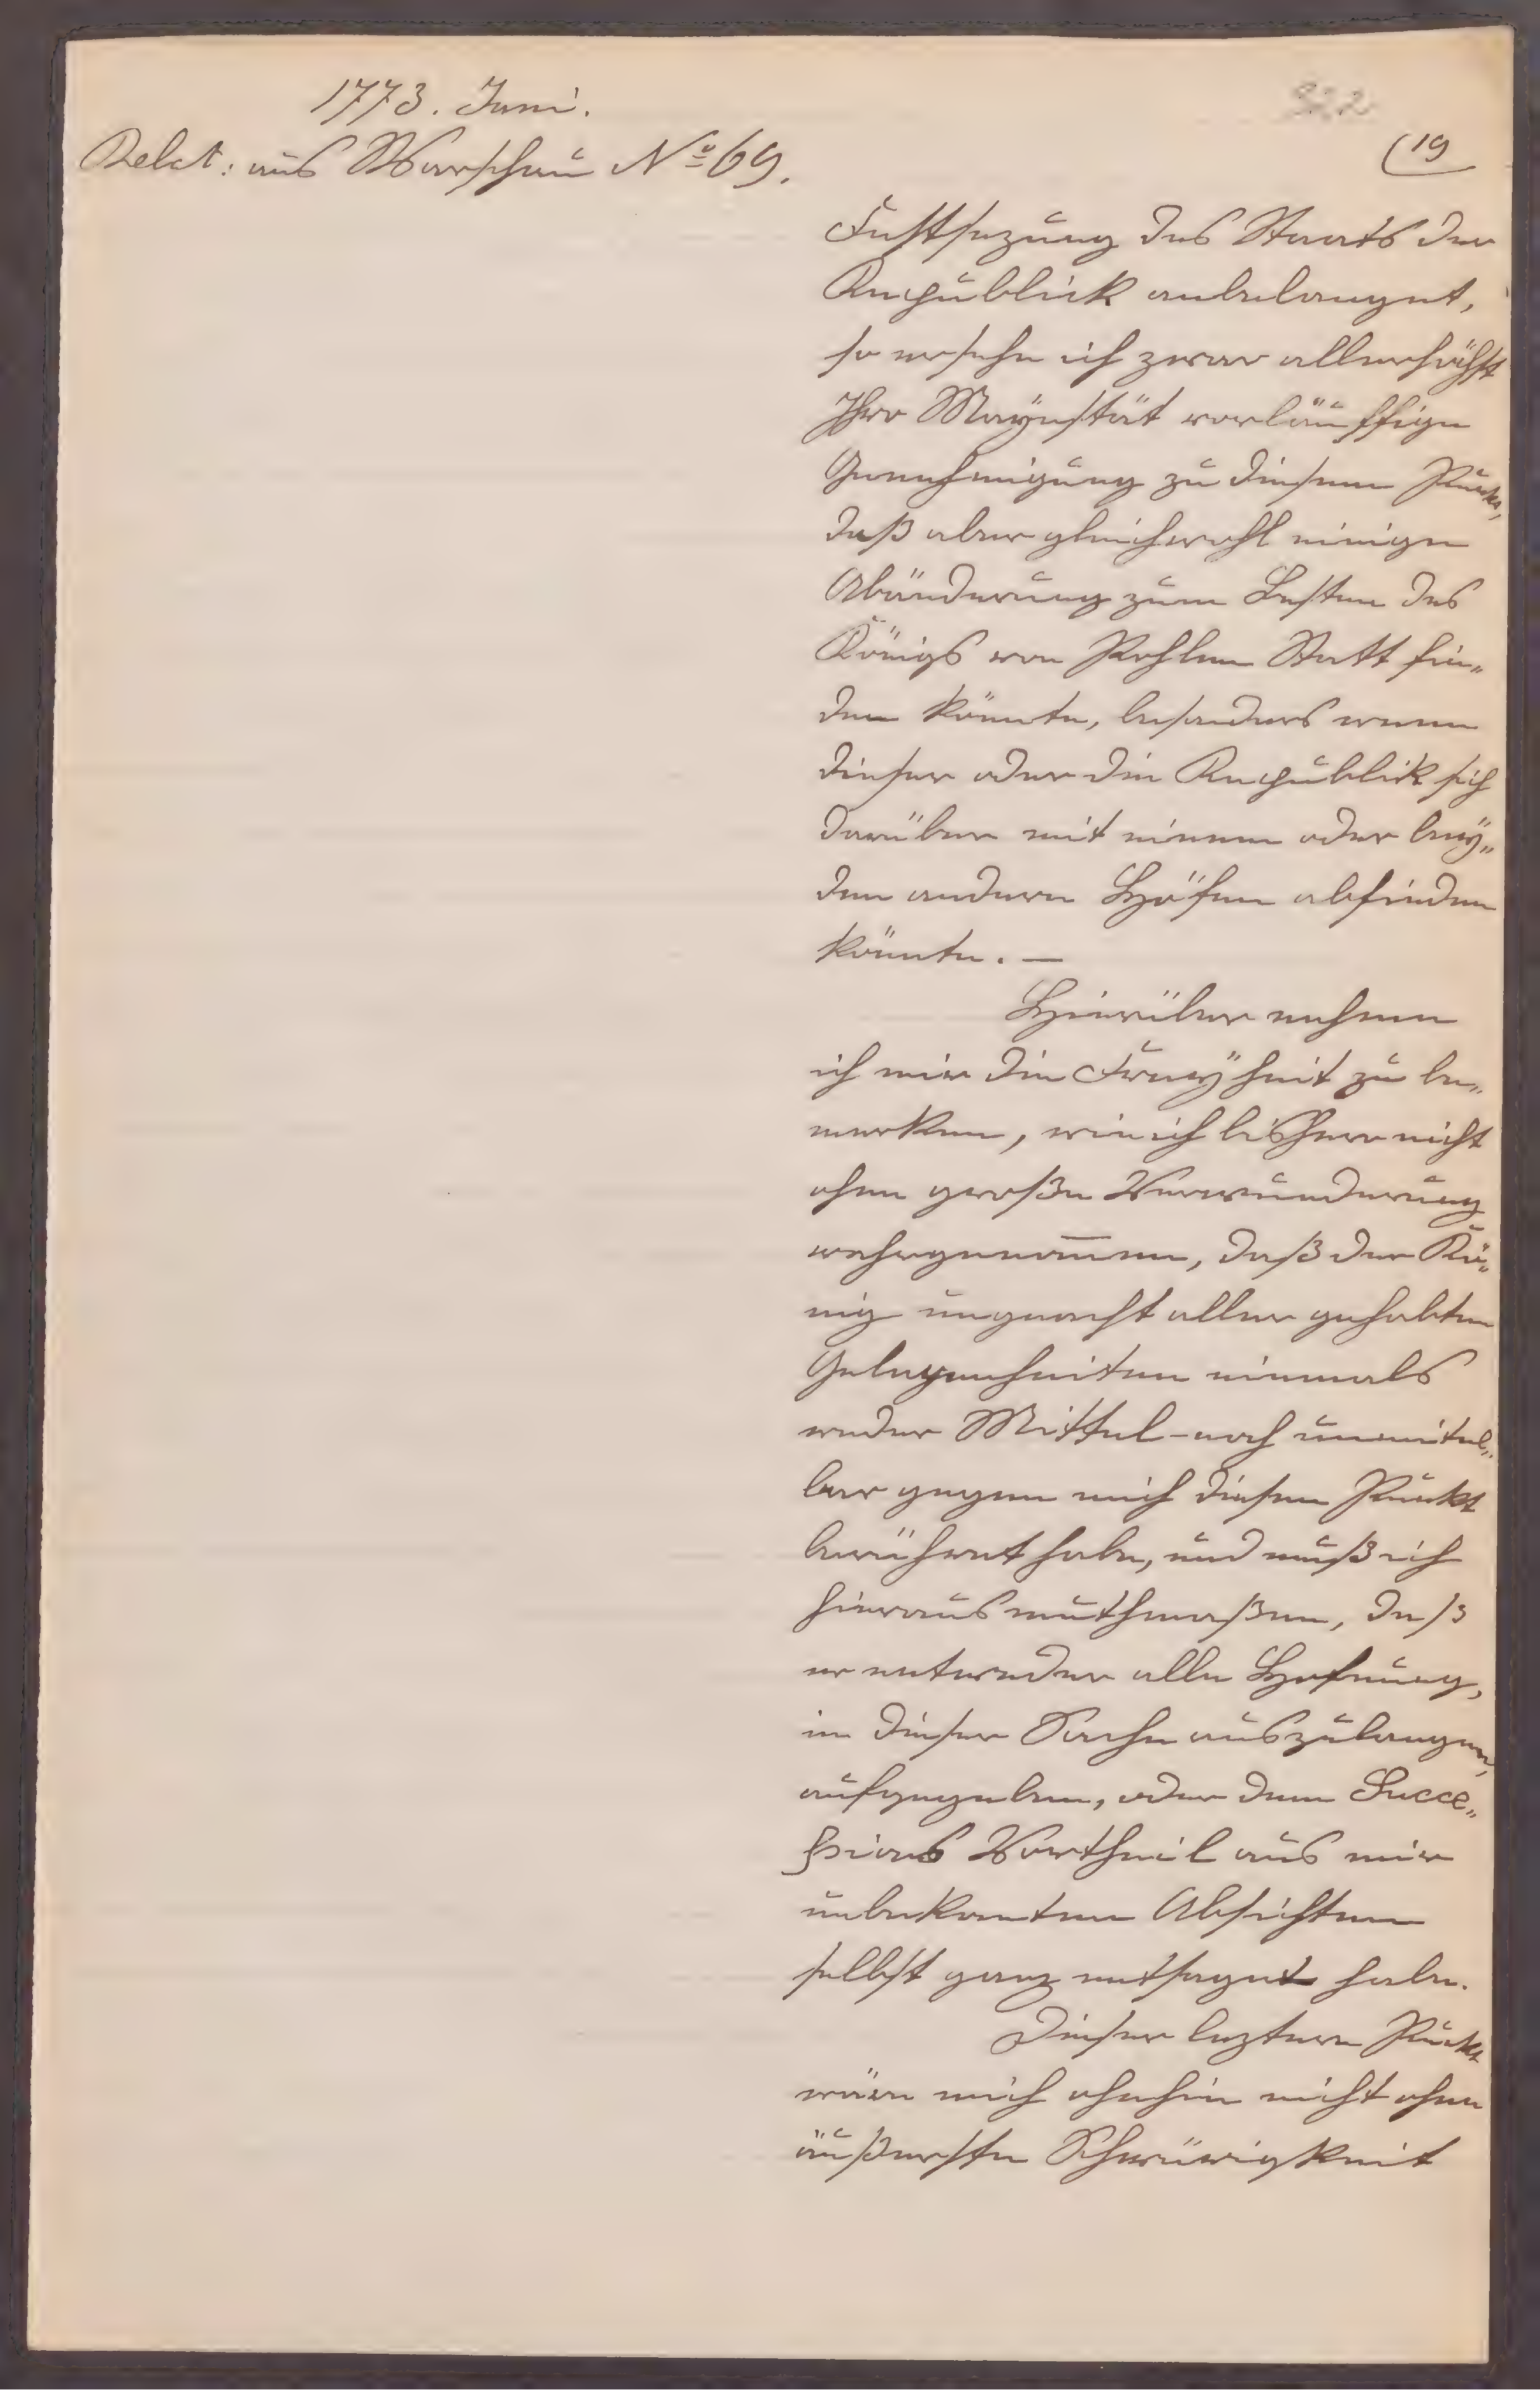 1773. Juni.
322
Relat: aus Warschau No 69.
(19
Festsezung des Staats der
Republick anbelanget,
so ersehe ich zwar allerhöchst
Ihro Mayestät vorläuffige
Genehmigung zu diesem Punkte,
daß aber gleichwohl einige
Abänderung zum Besten des
Königs von Pohlen Statt fin„
den könnte, besonders wenn
dieser oder die Republick sich
darüber mit einem oder bey„
den andern Höfen abfinden
könnte. —
Hierüber nehme
ich mir die Freyheit zu be„
merken, wie ich bishero nicht
ohne große Verwunderung
wahrgenom̅en, daß der Kö„
nig ungeacht aller gehabten
Gelegenheiten niemals
weder Mittel-noch unmitel„
bar gegen mich diesen Punkt
berühret habe, und muß ich
hieraus muthmaßen, daß
er entweder alle Hofnung,
in dieser Sache auszulangen,
aufgegeben, oder dem Succe„
ßions Vortheil aus mir
unbekanten Absichten
selbst ganz entsaget habe.
Dieser leztere Punkt
wäre mich ohnhin nicht ohne
äußerste Schwürigkeit